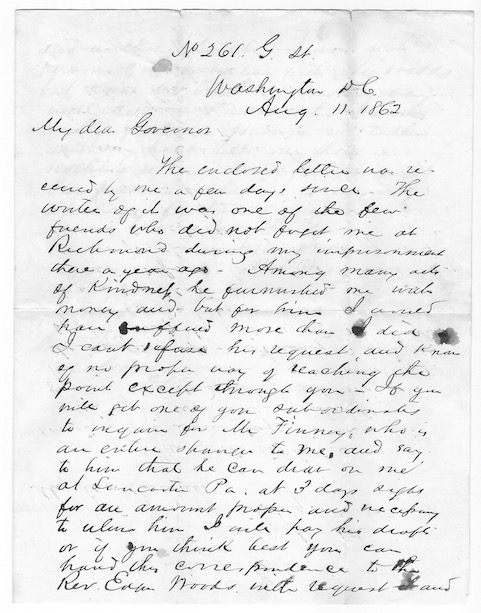 No 261. G. St.
Washington D.C.
Aug. 11. 1862
My dear Governor
The enclosed letter was re-
ceived by me a few days since. The
writer of it was one of the few
friends who did not forget me at
Richmond during my imprisonment
there a year ago - Among many acts
of Kindness he furnished me with
money and but for him I would
have suffered more than I did
I cant refuse his request, and know
of no proper way of reaching the
point except through you - If you
will get one of your subordinates
to inquire for Mr Finney, who is
an entire stranger to me, and say
to him that he can draw on me
at Lancaster Pa. at 3 days sight
for an amount proper and necessary
to relieve him I will pay his draft
or if you think best you can
hand this correspondence to the
Rev. Edgar Woods with request and